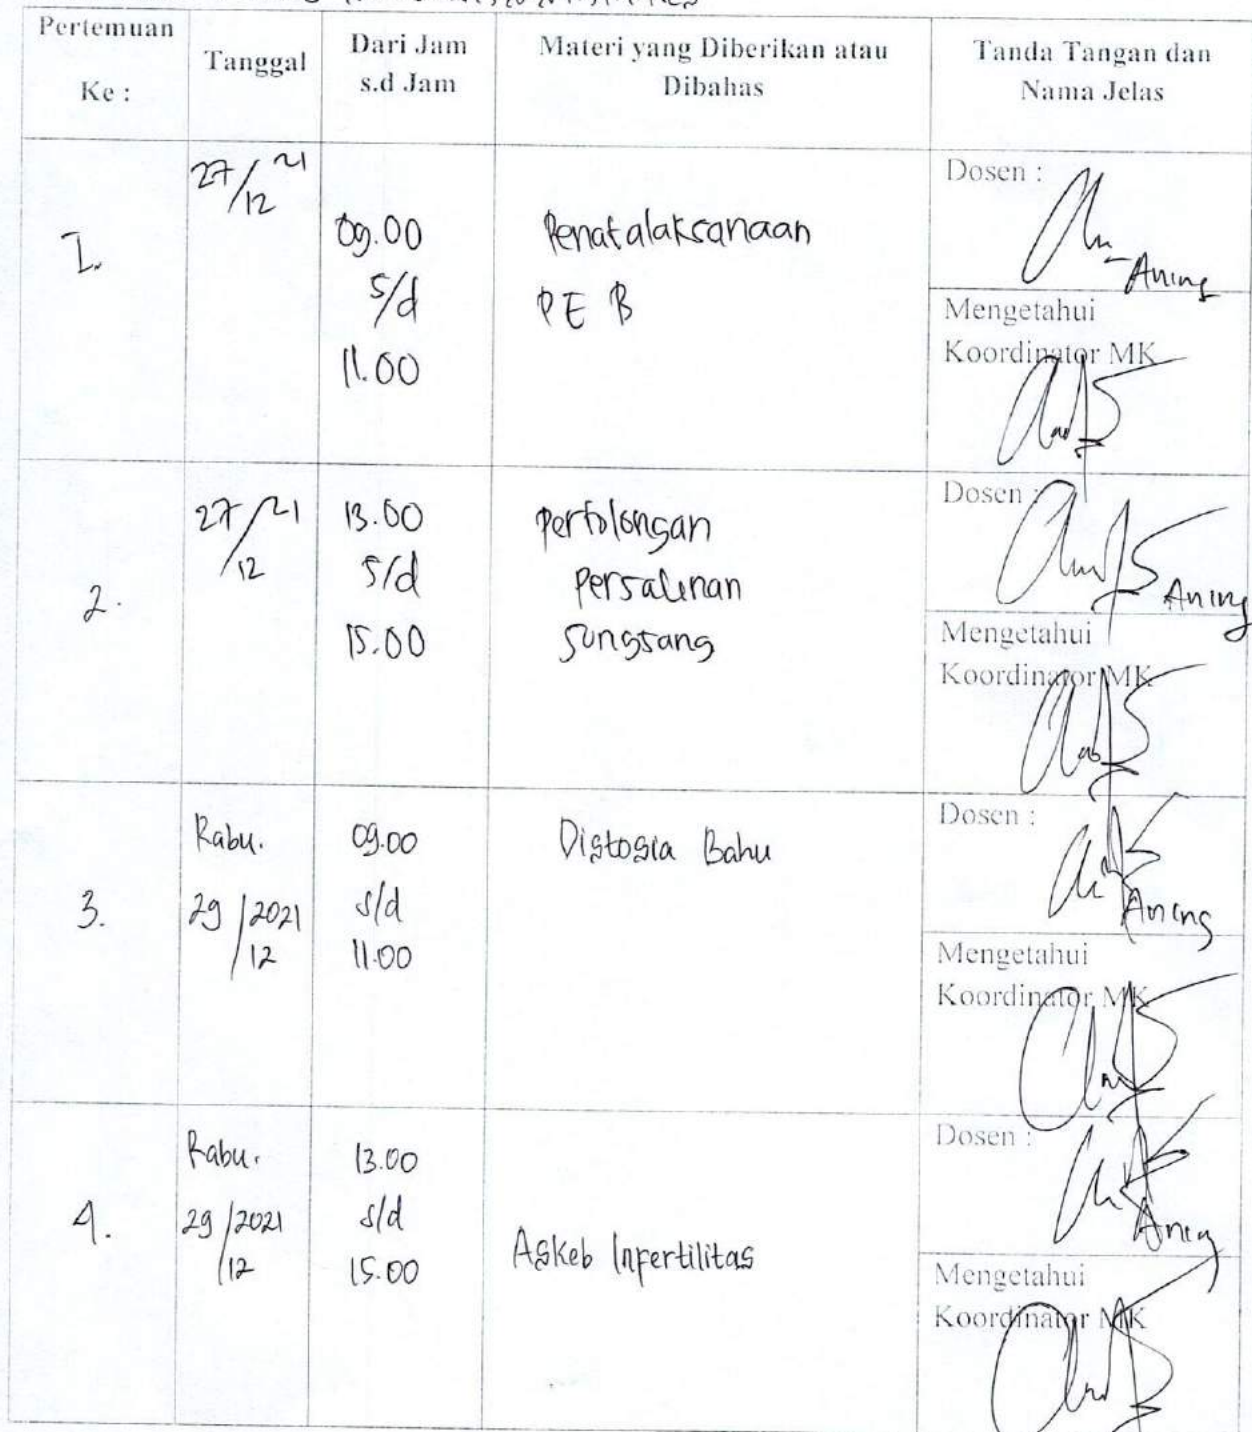 Pertemuan
Ke :
Tanggal
Dari Jam
s.d Jam
Materi yang Diberikan atau
Dibahas
Tanda Tangan dan
Nama Jelas
I.
27/12 21
09.00
s/d
11.00
Penatalaksanaan
PE B
Dosen :
Aning
Mengetahui
Koordinator MK
2.
27/12 21
13.00
s/d
15.00
Pertolongan
Persalinan
Sungsang
Dosen :
Aning
Mengetahui
Koordinator MK
3.
Rabu.
29/12 2021
09.00
s/d
11.00
Distosia Bahu
Dosen :
Aning
Mengetahui
Koordinator MK
4.
Rabu.
29/12 2021
13.00
s/d
15.00
Askeb Infertilitas
Dosen :
Aning
Mengetahui
Koordinator MK